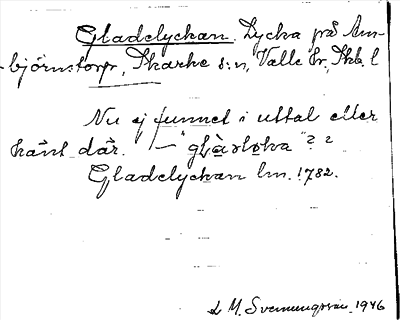 Gladelyckan. Lycka på Am-
björnstorp, Skarke s:n, Valle hr, Skb. l
Nu ej funnet i uttal eller
känt där. — "glàdløka" ? ?
Gladelyckan lm. 1782.
L M. Svenungsson 1946